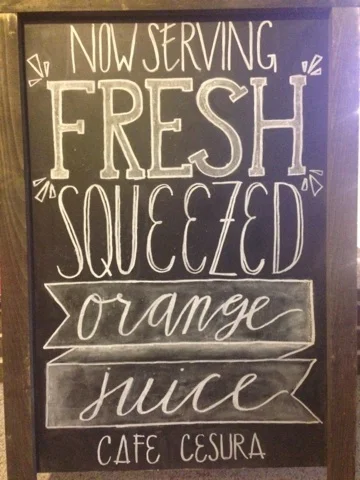 NOW SERVING
FRESH
SQUEEZED
orange
juice
CAFE CESURA